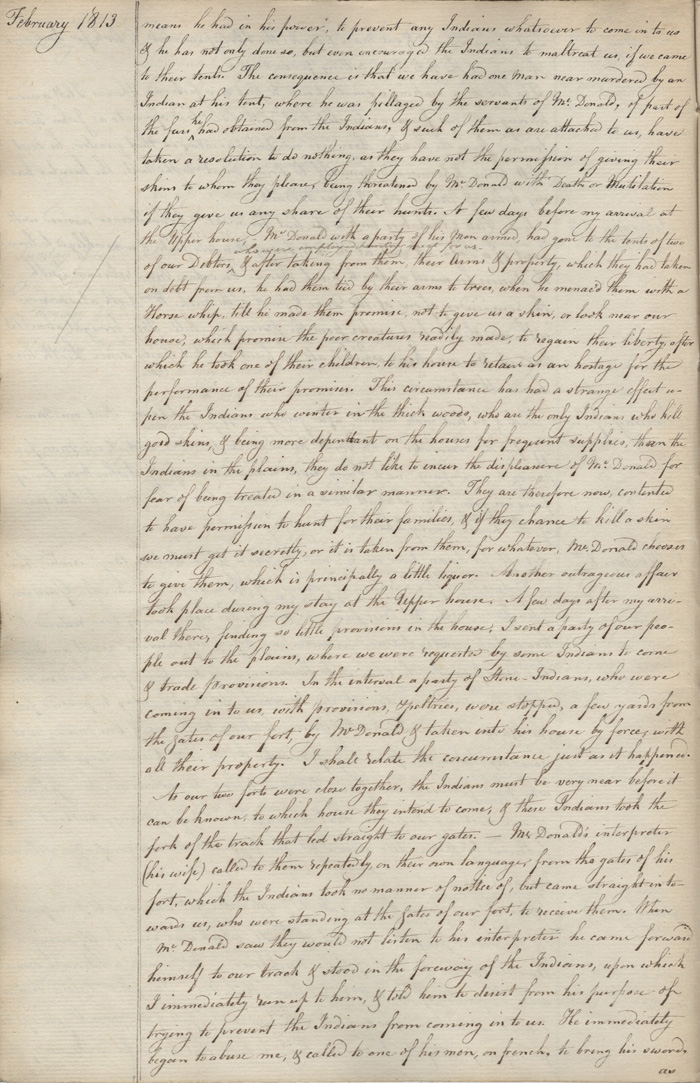 February 1813
means he had in his power, to prevent any Indians whatsoever to come in to us
& he has not only done so, but even encouraged the Indians to maltreat us, if we came
to their tents. The consequence is that we have had one man near murdered by an
Indian at his tent, where he was pillaged by the servants of Mr. Donald, of part of
the furs he had obtained from the Indians, & such of them as are attached to us, have
taken a resolution to do nothing, as they have not the permission of giving their
skins to whom they please, being threatened by Mc Donald with Death or Mutilation
if they give us any share of their hunts. A few days before my arrival at
the Upper house, Mc Donald with a party of his men armed, had gone to the tents of two
who were employed hunting for us.
of our Debtors, & after taking from them, their Arms & property, which they had taken
on debt from us, he had them tied by their arms to trees, when he menaced them with a
Horse whip, till he made them promise, not to give us a skin, or look near our
house, which promise the poor creatures readily made, to regain their liberty, after
which he took one of their children, to his house to retain as an hostage for the
performance of their promises. This circumstance has had a strange effect u-
pon the Indians who winter in the thick woods, who are the only Indians who kill
good skins, & being more dependant on the houses for frequent supplies, than the
Indians in the plains, they do not like to incur the displeasure of Mc Donald for
fear of being treated in a similar manner. They are therefore now, contented
to have permission to hunt for their families, & if they chance to kill a skin
we must get it secretly, or it is taken from them, for whatever, Mc Donald chooses
to give them, which is principally a little liquor. Another outrageous affair
took place during my stay at the Upper house. A few days after my arri-
val there, finding so little provisions in the house, I sent a party of our peo-
ple out to the plains, where we were requested by some Indians to come
& trade provisions. In the interval a party of Stone-Indians, who were
coming in to us, with provisions, & peltries, were stopped, a few yards from
the gates of our fort, by Mc Donald & taken into his house by force, with
all their property. I shall relate the circumstance just as it happened.
As our two forts were close together, the Indians must be very near before it
can be known, to which house they intend to come, & these Indians took the
fork of the track that led straight to our gates. — Mc Donald's interpreter
(his wife) called to them repeatedly, on their own language, from the gates of his
fort, which the Indians took no manner of notice of, but came straight in to-
wards us, who were standing at the gates of our fort, to receive them. When
Mc Donald saw they would not listen to his interpreter he came forward
himself to our track & stood in the foreway of the Indians, upon which
I immediately run up to him, & told him to desist from his purpose of
trying to prevent the Indians from coming in to us. He immediately
began to abuse me, & called to one of his men, on french, to bring his sword
as